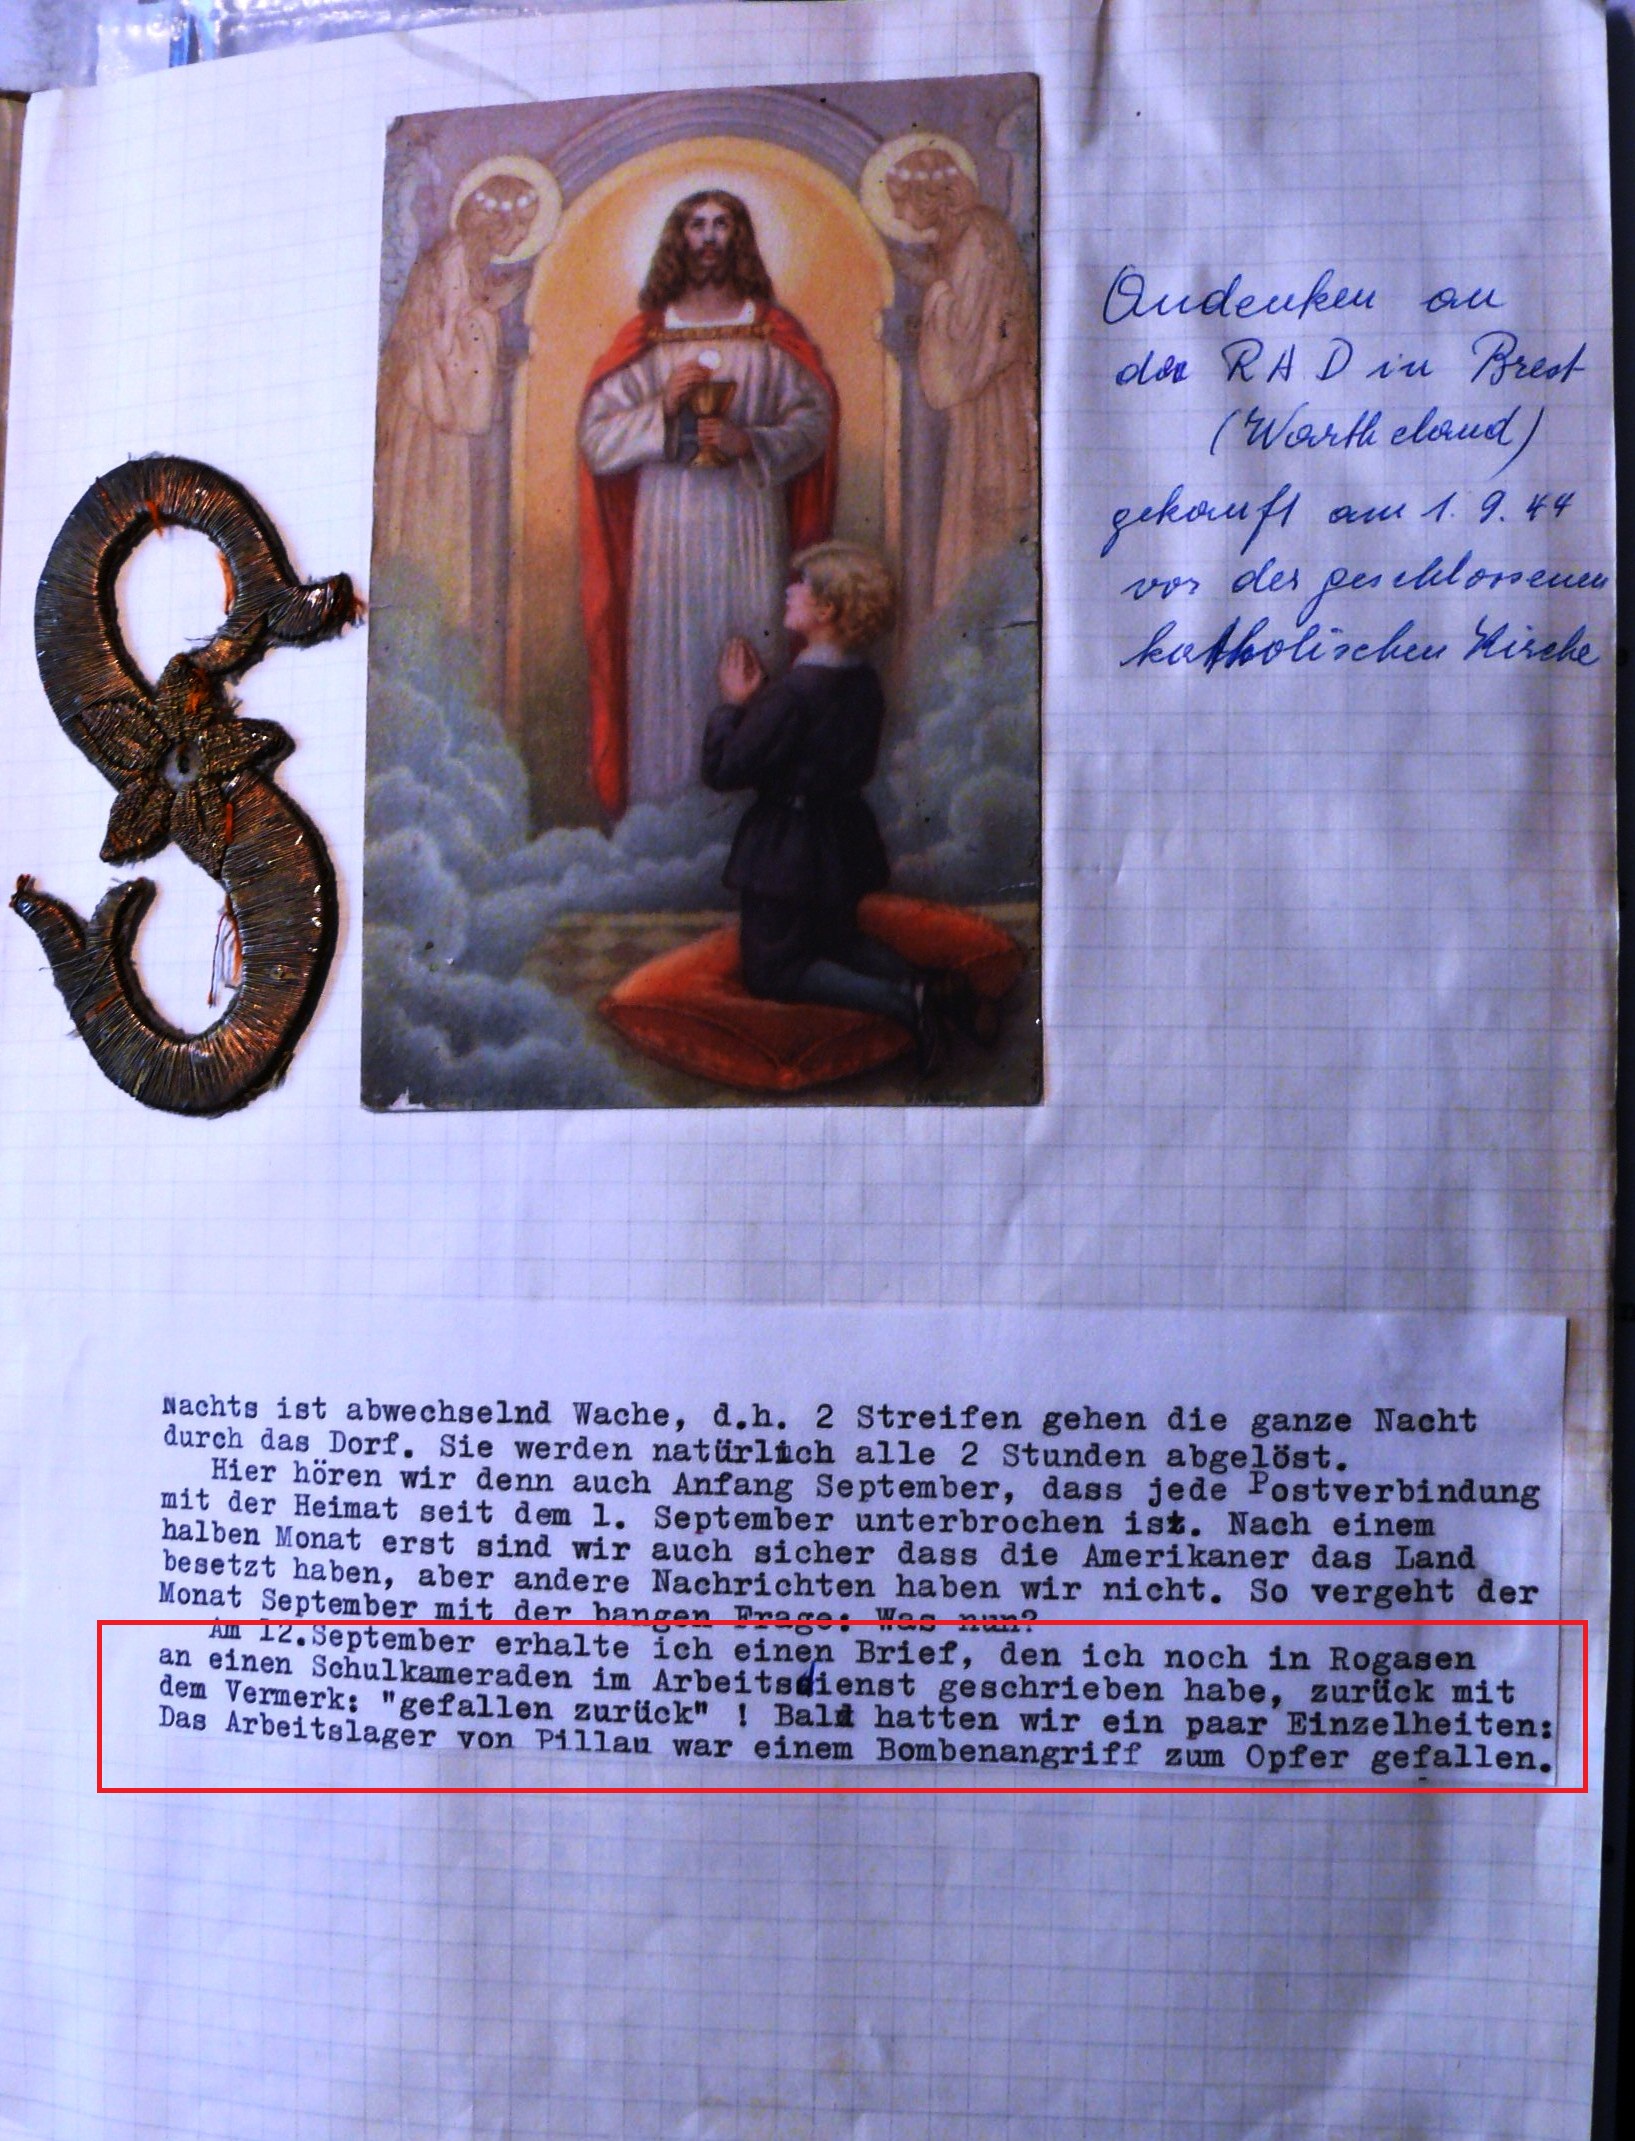 Andenken an
den RAD in Brest
(Wartheland)
gekauft am 1.9.44
vor der geschlossenen
katholischen Kirche
Nachts ist abwechselnd Wache, d.h. 2 Streifen gehen die ganze Nacht
durch das Dorf. Sie werden natürlich alle 2 Stunden abgelöst.
Hier hören wir denn auch Anfang September, dass jede Postverbindung
mit der Heimat seit dem 1. September unterbrochen ist. Nach einem
halben Monat erst sind wir auch sicher dass die Amerikaner das Land
besetzt haben, aber andere Nachrichten haben wir nicht. So vergeht der
Monat September mit der bangen Frage: Was nun?
Am 12.September erhalte ich einen Brief, den ich noch in Rogasen
an einen Schulkameraden im Arbeitsdienst geschrieben habe, zurück mit
dem Vermerk: "gefallen zurück" ! Bald hatten wir ein paar Einzelheiten:
Das Arbeitslager von Pillau war einem Bombenangriff zum Opfer gefallen.